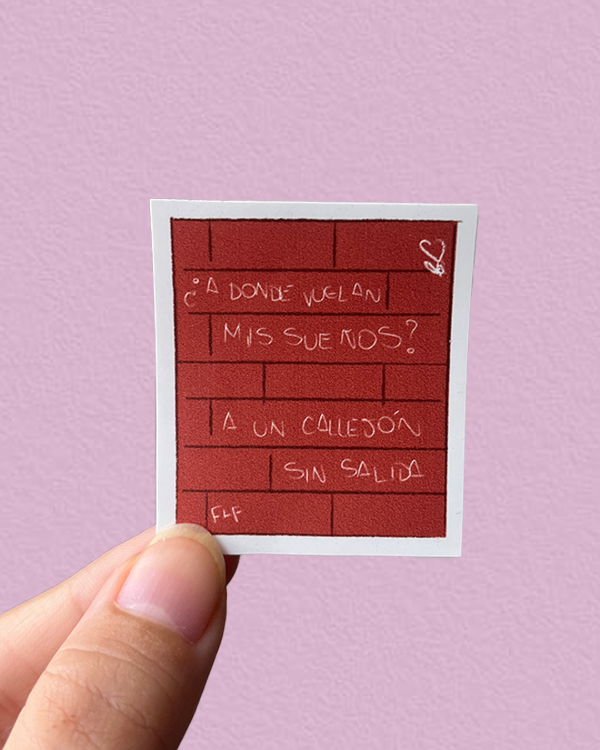 ¿A DONDE VUELAN
MIS SUEÑOS?
A UN CALLEJÓN
SIN SALIDA
FLF